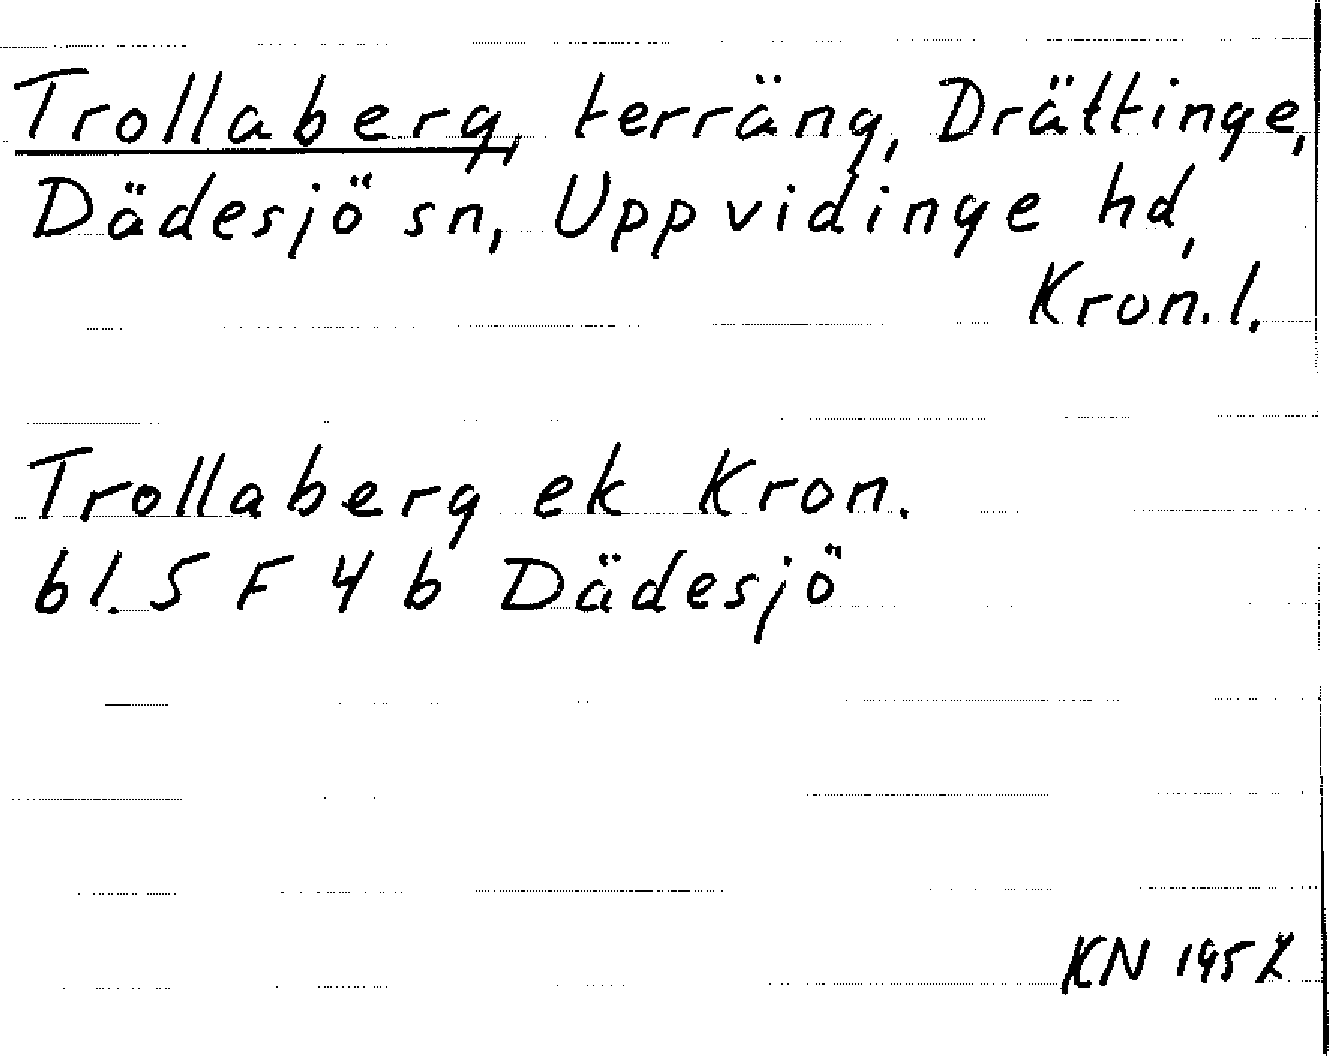 Trollaberg, terräng, Drättinge,
Dädesjö sn, Uppvidinge hd,
Kron. l.
Trollaberg ek Kron.
bl. 5 F 4 b Dädesjö
KN